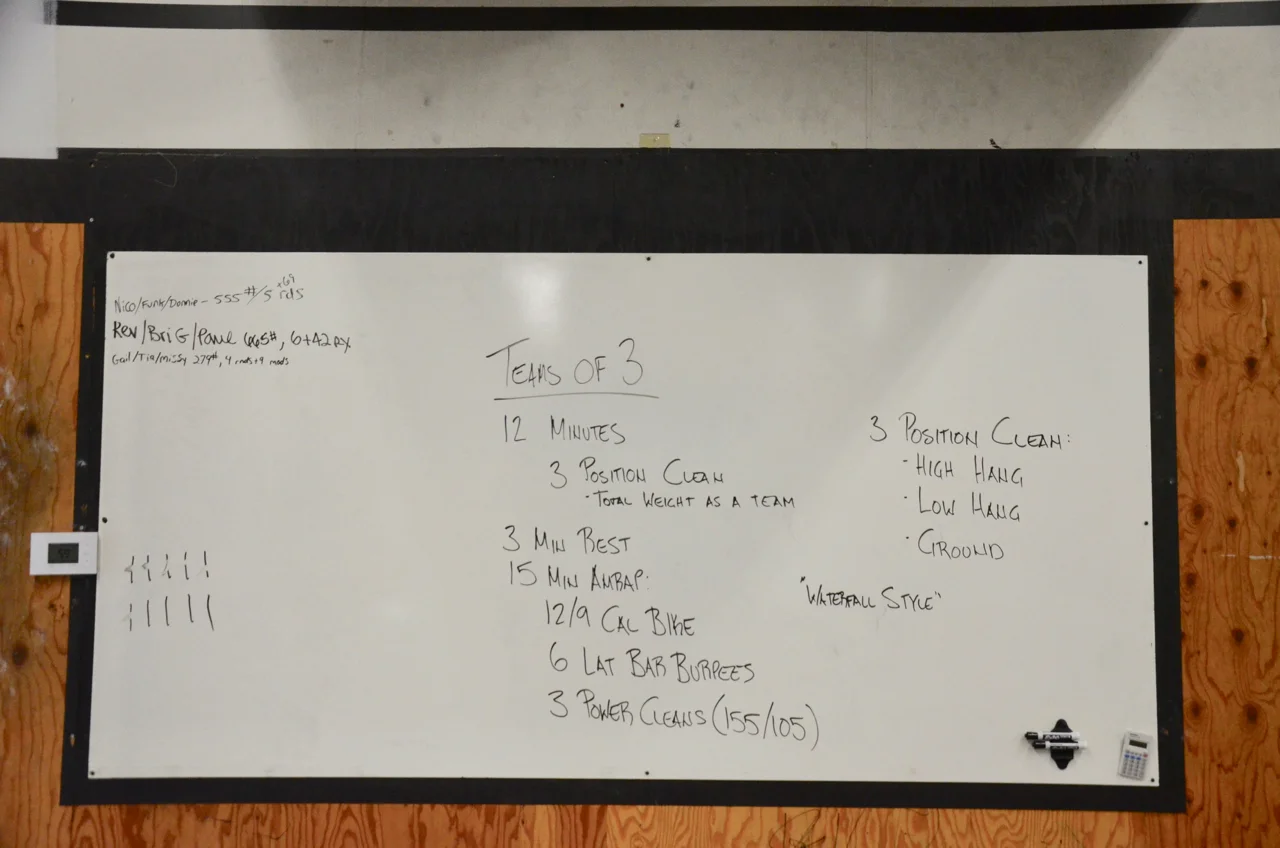 Nico/Funk/Donnie - 555#/5 rds +69
Rev/Bri G/Paul 665#, 6+42 Rx
Gail/Tia/Missy 279#, 4 rnds+9 mods
TEAMS OF 3
12 MINUTES
3 POSITION CLEAN
· TOTAL WEIGHT AS A TEAM
3 MIN REST
15 MIN AMRAP:
12/9 CAL BIKE
6 LAT BAR BURPEES
3 POWER CLEANS (155/105)
3 POSITION CLEAN:
· HIGH HANG
· LOW HANG
· GROUND
"WATERFALL STYLE"